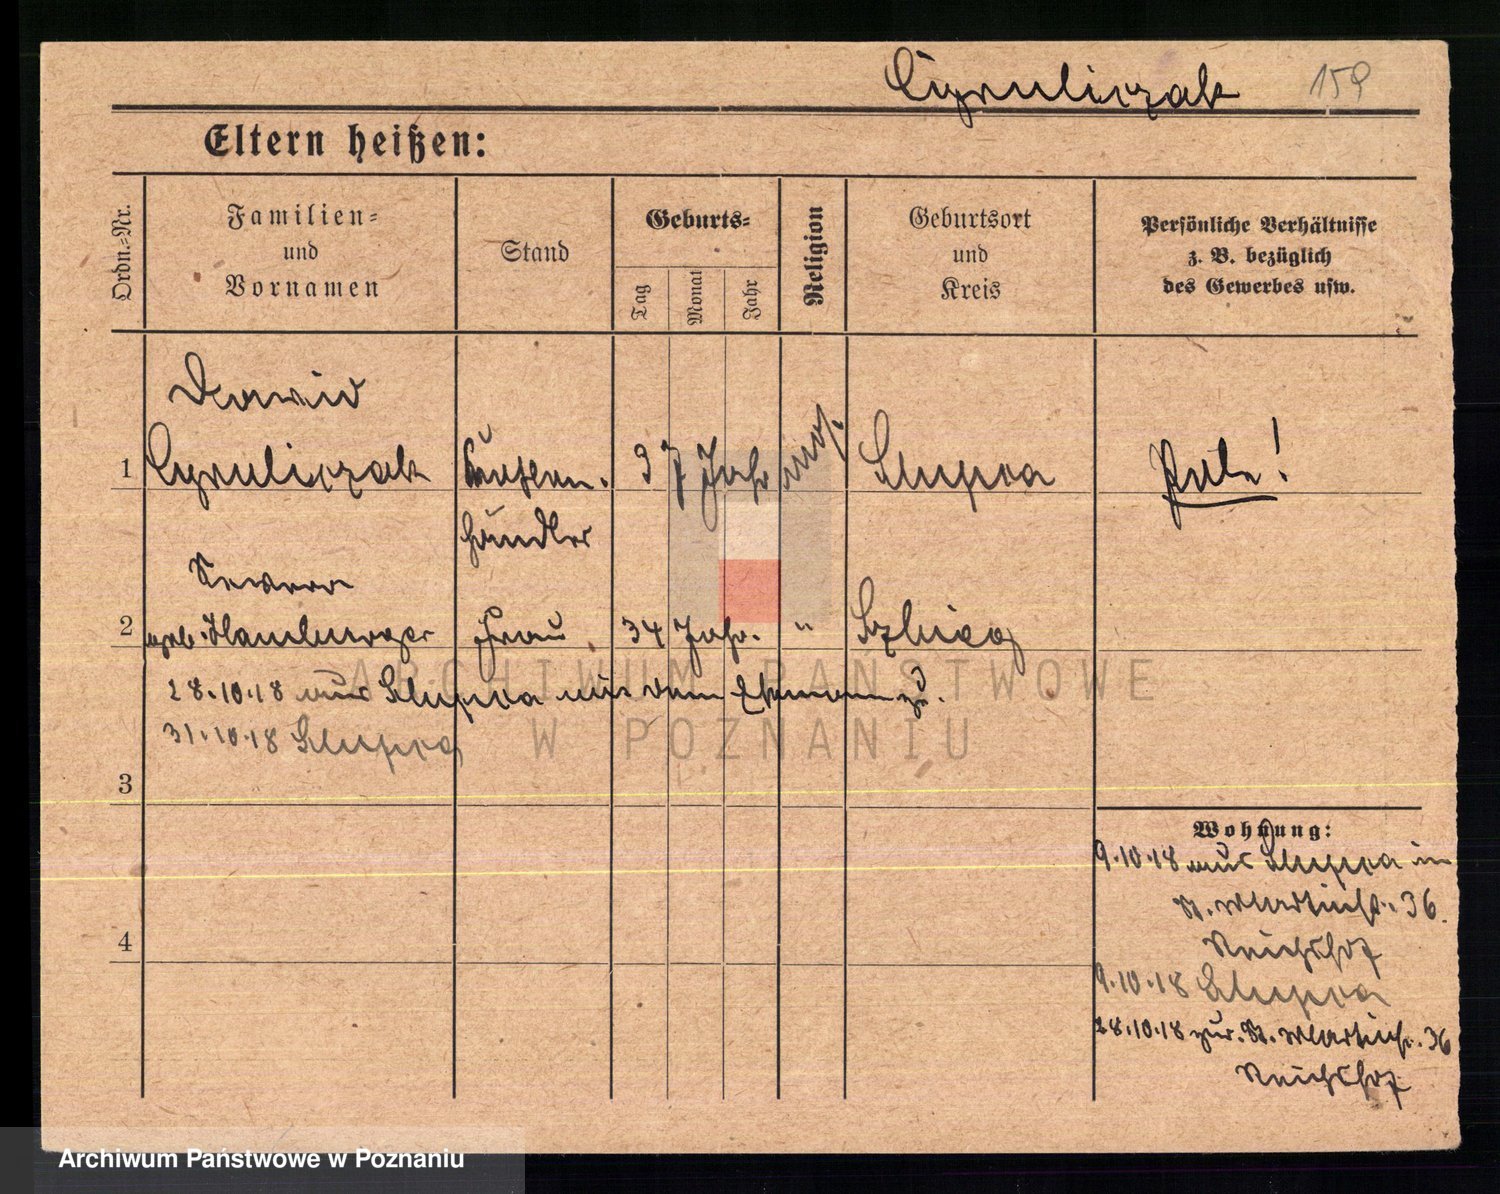 Cyruliczak 159
Eltern heißen:
Ordn.-Nr.
Familien-
und
Vornamen
Stand
Geburts-
Tag
Monat
Jahr
Religion
Geburtsort
und
Kreis
Persönliche Verhältnisse
z. B. bezüglich
des Gewerbes usw.
Dawid
1 Cyruliczak 37 Jahr mos. Slupca Pole!
händler
2 geb. Hamburger Frau 34 Jahr. "
28.10.18 aus Slupca mit dem Ehemann zu.
31.10.18 Slupca
3
Wohnung:
9.10.18 aus Slupca in
St. Martinstr. 36.
Reichshof
4
9.10.18 Slupca
28.10.18 zur. St. Martinstr. 36
Reichshof
ARCHIWUM PAŃSTWOWE
W POZNANIU
Archiwum Państwowe w Poznaniu